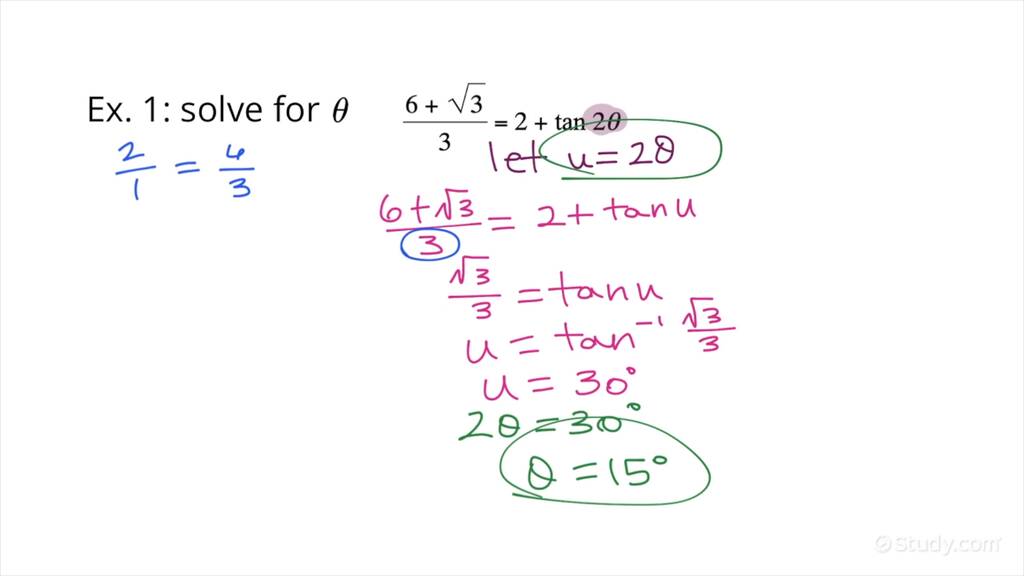 Ex. 1: solve for θ
(6 + √3)/3 = 2 + tan 2θ
let u = 2θ
2/1 = 6/3
(6 + √3)/3 = 2 + tan u
√3/3 = tan u
u = tan⁻¹ √3/3
u = 30°
2θ = 30°
θ = 15°
Study.com